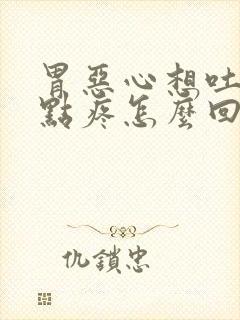 胃惡心想吐
點疼怎麼回
仇鎖忠